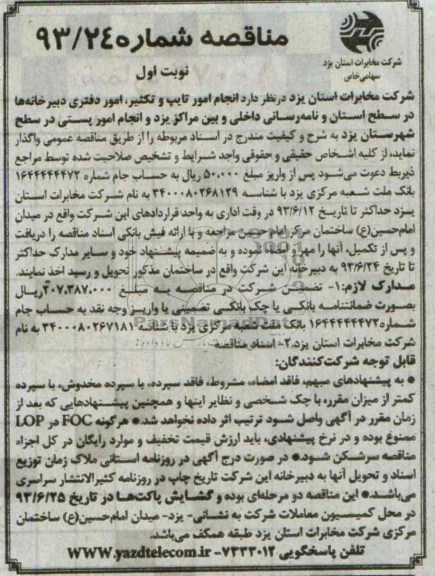 مناقصه شماره ۹۳/۲۴
نوبت اول
شرکت مخابرات استان یزد
سهامی خاص
شرکت مخابرات استان یزد درنظر دارد انجام امور تایپ و تکثیر، امور دفتری دبیرخانه‌ها
در سطح استان و نامه‌رسانی داخلی و بین مراکز یزد و انجام امور پستی در سطح
شهرستان یزد به شرح و کیفیت مندرج در اسناد مربوطه را از طریق مناقصه عمومی واگذار
نماید، از کلیه اشخاص حقیقی و حقوقی واجد شرایط و تشخیص صلاحیت شده توسط مراجع
ذیربط دعوت می‌شود پس از واریز مبلغ ۵۰،۰۰۰ ریال به حساب جام شماره ۱۶۴۴۴۴۴۴۷۲
بانک ملت شعبه مرکزی یزد با شناسه ۳۴۰۰۰۸۰۲۶۸۱۲۹ به نام شرکت مخابرات استان
یزد حداکثر تا تاریخ ۹۳/۶/۱۲ در وقت اداری به واحد قراردادهای این شرکت واقع در میدان
امام‌حسین(ع) ساختمان مرکز امام حسین مراجعه و با ارائه فیش بانکی اسناد مناقصه را دریافت
و پس از تکمیل، آنها را مهر و امضاء نموده و به ضمیمه پیشنهاد خود و سایر مدارک حداکثر
تا تاریخ ۹۳/۶/۲۴ به دبیرخانه این شرکت واقع در ساختمان مذکور تحویل و رسید اخذ نمایند.
مدارک لازم: ۱- تضمین شرکت در مناقصه به مبلغ ۲۰۷،۳۸۷،۰۰۰ ریال
بصورت ضمانتنامه بانکی یا چک بانکی تضمینی یا واریز وجه نقد به حساب جام
شماره ۱۶۴۴۴۴۴۴۷۲ بانک ملت شعبه مرکزی یزد با شناسه ۳۴۰۰۰۸۰۲۶۷۱۸۱ به نام
شرکت مخابرات استان یزد. ۲- اسناد مناقصه
قابل توجه شرکت‌کنندگان:
● به پیشنهادهای مبهم، فاقد امضاء، مشروط، فاقد سپرده، یا سپرده مخدوش، یا سپرده
کمتر از میزان مقرر، یا چک شخصی و نظایر اینها و همچنین پیشنهادهایی که بعد از
زمان مقرر در آگهی واصل شود ترتیب اثر داده نخواهد شد ● هرگونه FOC در LOP
ممنوع بوده و در نرخ پیشنهادی، باید ارزش قیمت تخفیف و موارد رایگان در کل اجزاء
مناقصه سرشکن شود. ● در صورت درج آگهی در روزنامه استانی ملاک زمان توزیع
اسناد و تحویل آنها به دبیرخانه این شرکت تاریخ چاپ در روزنامه کثیرالانتشار سراسری
می‌باشد. ● این مناقصه دو مرحله‌ای بوده و گشایش پاکت‌ها در تاریخ ۹۳/۶/۲۵
در محل کمیسیون معاملات شرکت به نشانی- یزد- میدان امام‌حسین(ع) ساختمان
مرکزی شرکت مخابرات استان یزد طبقه همکف می‌باشد.
تلفن پاسخگویی ۷۲۳۳۰۱۲- www.yazdtelecom.ir